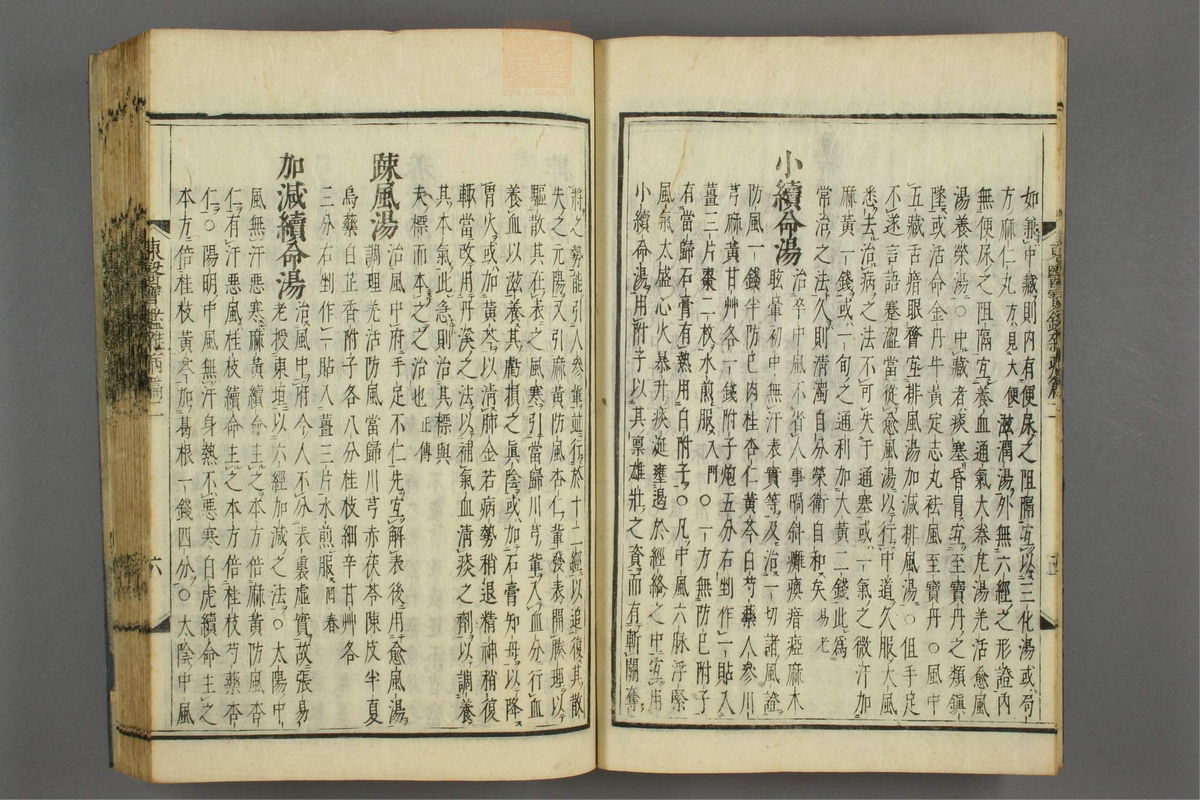 如兼中藏則內有便尿之阻隔宜以三化湯或局
方麻仁丸方見大便滋潤湯外無六經之形證內
無便尿之阻隔宜養血通氣大秦艽湯羌活愈風
湯養榮湯○中藏者痰塞昏冒宜至寶丹之類鎭
墜或活命金丹牛黃定志丸祛風至寶丹○風中
五藏舌瘖眼瞀宜排風湯加減排風湯○但手足
不遂言語蹇澀當從愈風湯以行中道久服大風
悉去治病之法不可失于通塞或一氣之微汗加
麻黃一錢或一旬之通利加大黃二錢此爲
常治之法久則淸濁自分榮衛自和矣易老
小續命湯
治卒中風不省人事喎斜癱瘓瘖瘂麻木
眩暈初中無汗表實等及治一切諸風證
防風一錢半防己肉桂杏仁黃芩白芍藥人參川
芎麻黃甘艸各一錢附子炮五分右剉作一貼入
薑三片棗二枚水煎服入門○一方無防己附子
有當歸石膏有熱用白附子○凡中風六脉浮緊
風氣太盛心火暴升痰涎壅遏於經絡之中宜用
小續命湯用附子以其禀雄壯之資而有斬關奪
將之勢能引人參軰並行於十二經以追復其散
失之元陽又引麻黃防風杏仁軰發表開腠理以
驅散其在表之風寒引當歸川芎軰入血分行血
養血以滋養其虧損之眞陰或加石膏知母以降
胃火或加黃芩以淸肺金若病勢稍退精神稍復
輒當改用丹溪之法以補氣血淸痰之劑以調養
其本氣此急則治其標與
夫標而本之之治也正傳
踈風湯
治風中府手足不仁先宜解表後用愈風湯
調理羌活防風當歸川芎赤茯苓陳皮半夏
烏藥白芷香附子各八分桂枝細辛甘艸各
三分右剉作一貼入薑三片水煎服回春
加減續命湯
治風中府今人不分表裏虛實故張易
老授東垣以六經加減之法○太陽中
風無汗惡寒麻黃續命主之本方倍麻黃防風杏
仁有汗惡風桂枝續命主之本方倍桂枝芍藥杏
仁○陽明中風無汗身熱不惡寒白虎續命主之
本方倍桂枝黃芩加葛根一錢四分○太陰中風
東醫寶鑑雜病篇二
六